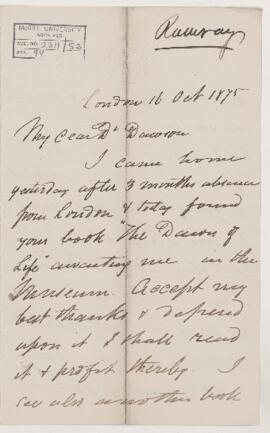 Ramsay
McGILL UNIVERSITY
ARCHIVES
ACC. NO. 2211/53
REF. 94
London 16 Oct 1875
My dear Dr Dawson
I came home
yesterday after 3 months absence
from London & today found
your book "The Dawn of
Life" awaiting me in the
Museum. Accept my
best thanks & depend
upon it I shall read
it & profit thereby. I
see also another book